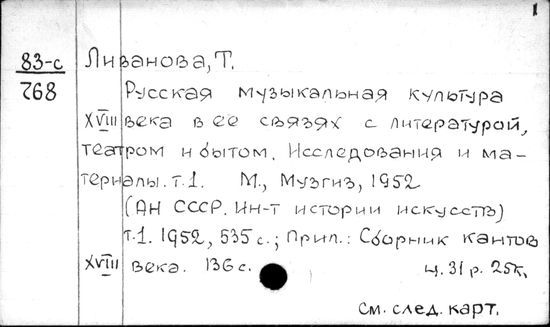 1
83-с Ливанова, Т.
768
Русская музыкальная культура
XVIII века в ее связях с литературой,
театром и бытом. Исследования и ма-
териалы. т.1. М., Музгиз, 1952
(АН СССР. Ин-т истории искусств)
т.1. 1952, 535 с.; Прил.: Сборник кантов
XVIII века. 136 с. ц. 31 р. 25к.
См. след. карт.